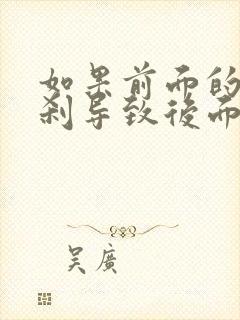 如果前而的
刹导致後而
吴廣